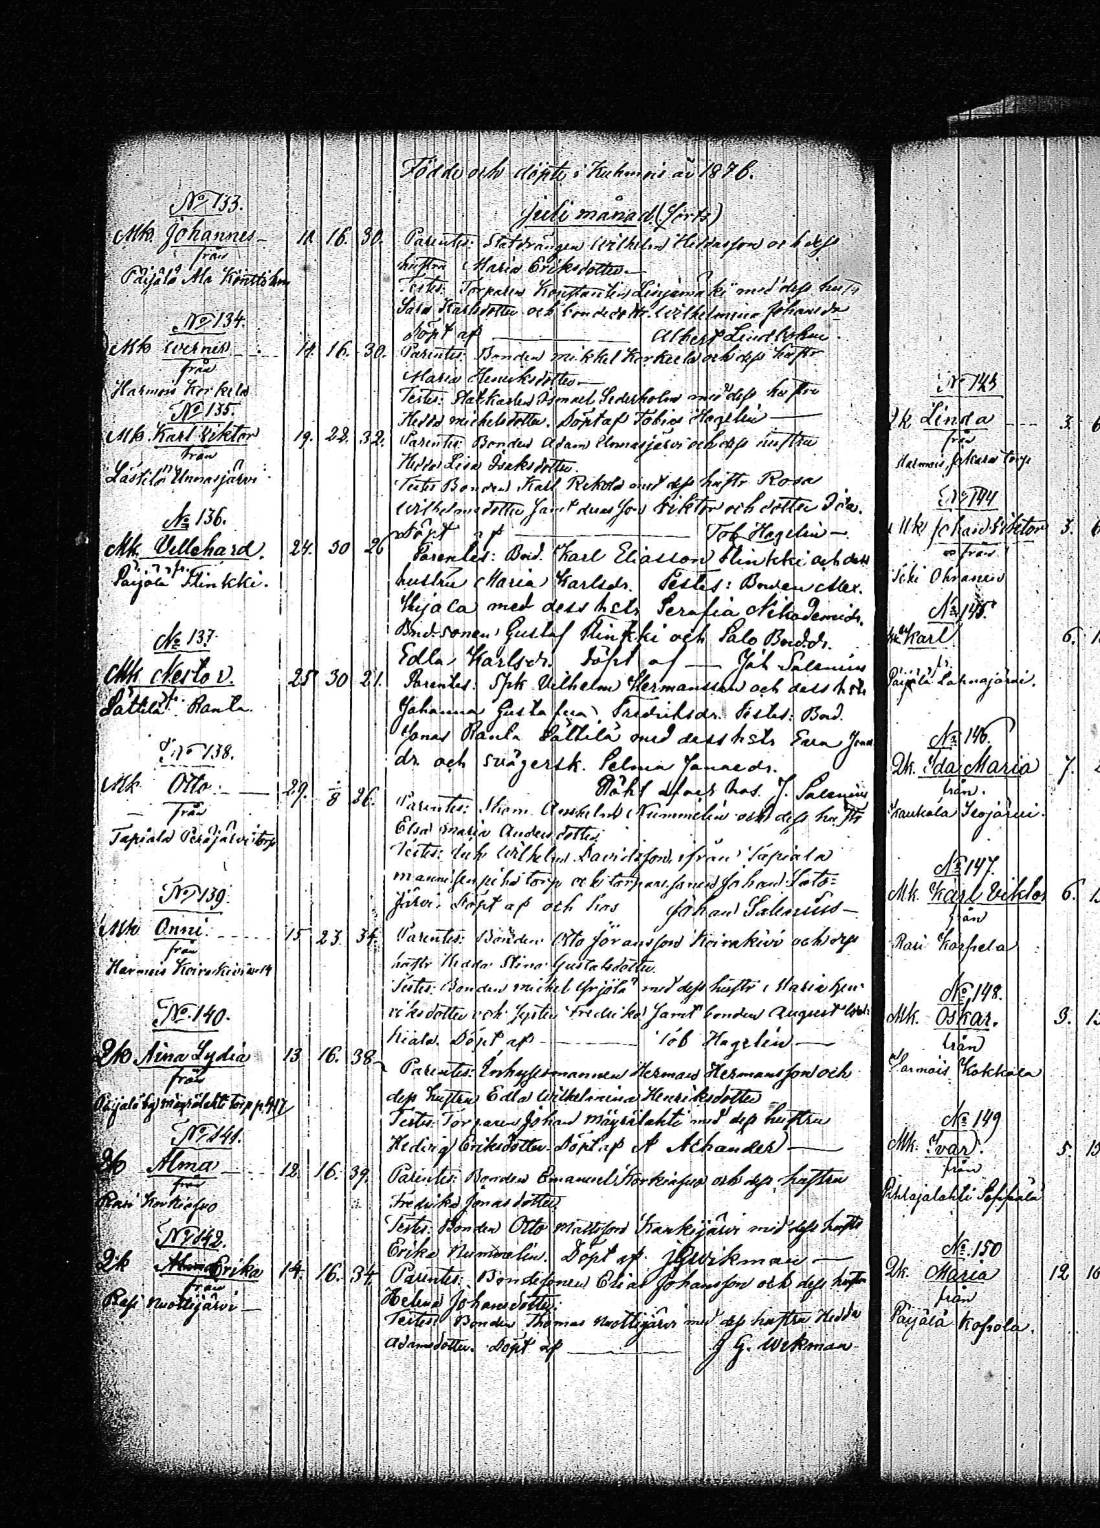 Födde och döpte i Kuhmois år 1876.
Juli månad (forts)
No 133.
Mk. Johannes 11. 16. 30.
från
Päijälä Ala Konttila
Parentes: Statdrängen Wilhelm och dess
hustru Maria Eriksdotter
Testes: Torparen Konstantin Linjamäki med dess hustr
Sara Karlsdotter och bondedottr. Wilhelmina Johansdr
Döpt af Albert
No 134.
Mk Werner 14. 16. 30.
från
Harmois Korkela
Parentes: Bonden Mikkel Korkeela och dess hustr
Maria Henriksdotter
Testes: Statkarlen Ismael Sederholm med dess hustru
Hedda Michelsdotter. Döpt af Tobias Hagelin
No 135.
Mk. Karl Viktor 19. 22. 32.
från
Lästilä Unnasjärvi
Parentes: Bonden Adam Unnasjärvi och dess hustru
Hedda Lisa Isaksdotter.
Testes Bonden Karl Rekola med dess hustr Rosa
Wilhelmsdotter samt deras son Viktor och dotter Ida.
Döpt af Tob Hagelin
No 136.
Mk. Villehard. 24. 30 26
Päijälä Flinkki.
Parentes: Bond. Karl Eliasson Flinkki och dess
hustru Maria Karlsdr. Testes: Bonden Alex.
med dess hstr Serafia Nikodemidr.
Bndsonen Gustaf Flinkki och Salo Bonddr.
Edla Karlsdr. Döpt af Joh Salenius
No 137.
Mk Nestor. 25 30 21.
Sättilä Ranta
Parentes: Spk Vilhelm Hermansson och dess hstr
Johanna Gustafva Fredriksdr. Testes: Bond.
Jonas Ranta Sättilä med dess hstr Eva Jonas
dr. och svägersk. Selma Jonaedr.
Döpt af och hos J. Salenius
No 138.
Mk Otto 29. 8 26.
från
Tapiala Peräjärvi torp
Parentes: Anshelm Nummelin och dess hustr
Elsa Maria Andersdotter
Testes: Wilhelm Davidsson från Tapiala
torp och torparesonen Johan Soto=
järvi. Döpt af och hos Johan Salenius
No 139.
Mk Onni 15. 23. 34.
från
Harmois Koivukivi
Parentes: Bonden Otto Göransson Koivukivi och dess
hustr Hedda Stina Gustafsdotter.
Testes: Bonden Michel med dess hustru Maria Hen=
riksdotter och syster Fredrika samt bonden August
Döpt af Tob Hagelin
No 140.
Qk Aina Lydia 13 16. 38
från
Päijälä by Mäyrälahti torp
Parentes: Inhysesmannen Herman Hermansson och
dess hustru Edla Wilhelmina Henriksdotter
Testes: Torparen Johan Mäyrälahti med dess hustru
Hedvig Eriksdotter. Döpt af A Alhander
No 141.
Qk Alma 12. 16. 39.
från
Pasi Korkiasuo
Parentes: Bonden Emanuel Korkiasuo och dess hustru
Fredrika Jonasdotter
Testes: Bonden Otto Mattsson Kaukijärvi med dess hustr
Erika Nummelin. Döpt af J G Wikman
No 142.
Qk Alma Erika 14. 16. 34.
från
Pasi Nuottijärvi
Parentes: Bondesonen Elias Johansson och dess hustru
Helena Johansdotter.
Testes: Bonden Thomas Nuottijärvi med dess hustru Hedda
Adamsdotter. Döpt af J G. Wikman
No 143
Qk Linda 3.
från
Harmois Jokara torp
No 144
Mk Johan Viktor 3.
från
No 145
Mk Karl 6.
Päijälä Lahnajärvi.
No 146.
Qk. Ida Maria 7.
från.
Kaukola Isojärvi.
No 147.
Mk. Karl Viktor 6.
från
Pasi Karpela
No 148.
Mk. Oskar. 3. 13
från
Harmois Kokkola
No 149
Mk. Ivar. 5. 13
från
Puhtajalahti Seppälä
No 150
Qk. Maria 12 16
från
Päijälä Kossola.